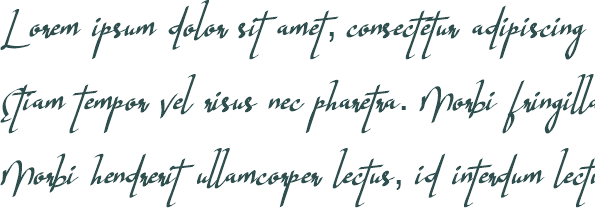 Lorem ipsum dolor sit amet, consectetur adipiscing
Etiam tempor vel risus nec pharetra. Morbi fringilla
Morbi hendrerit ullamcorper lectus, id interdum lectu